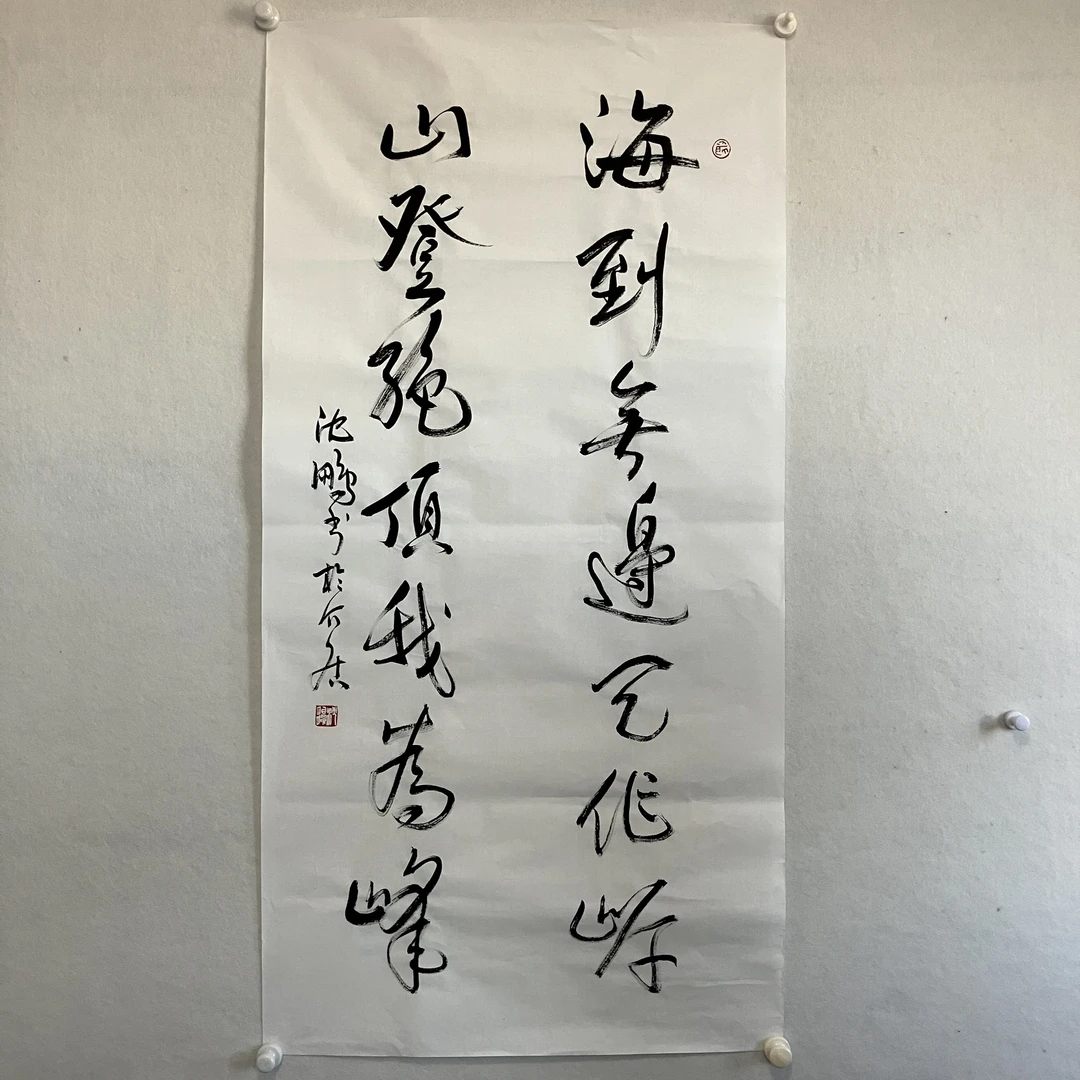 海到無邊天作岸
山登絶頂我為峰
沈鵬書於介居